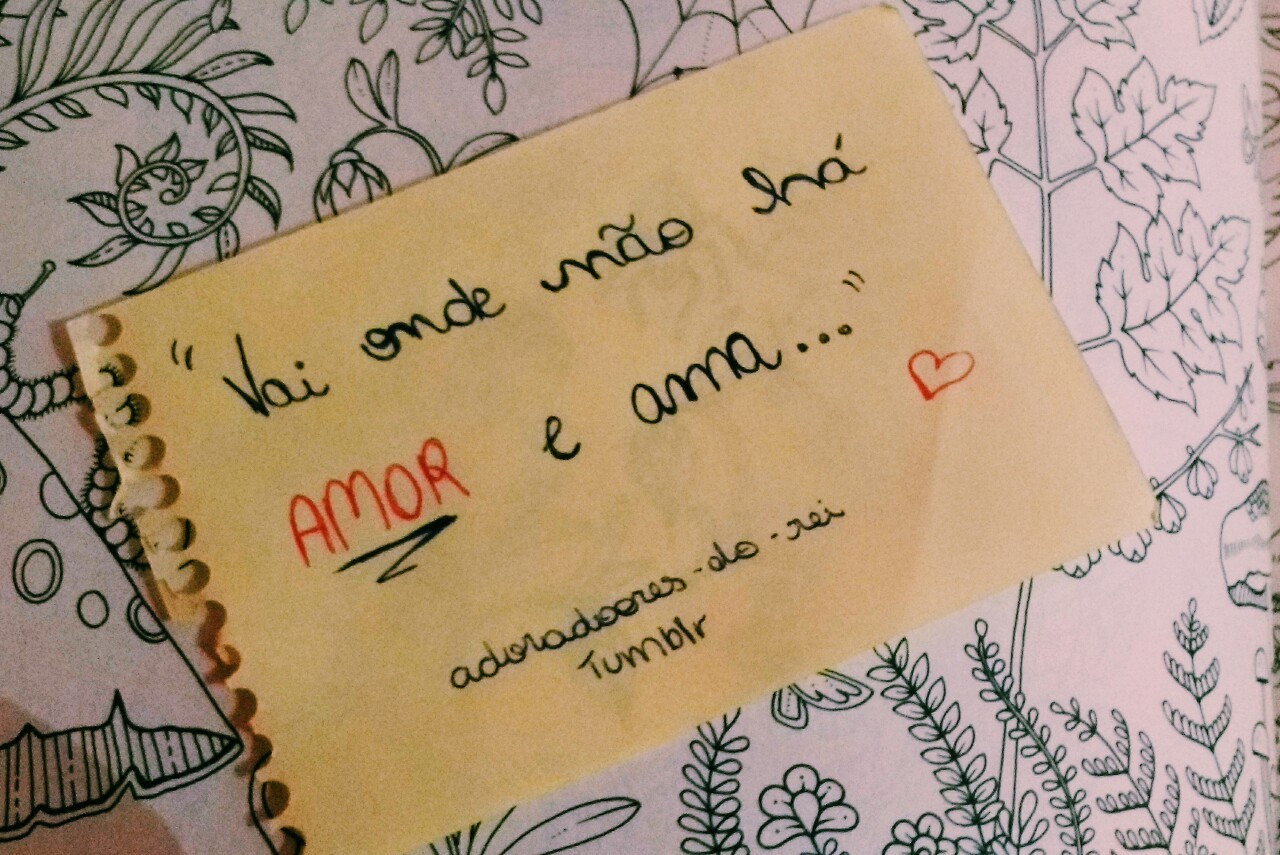 "Vai onde não há
AMOR e ama..."
adoradores-do-rei
Tumblr